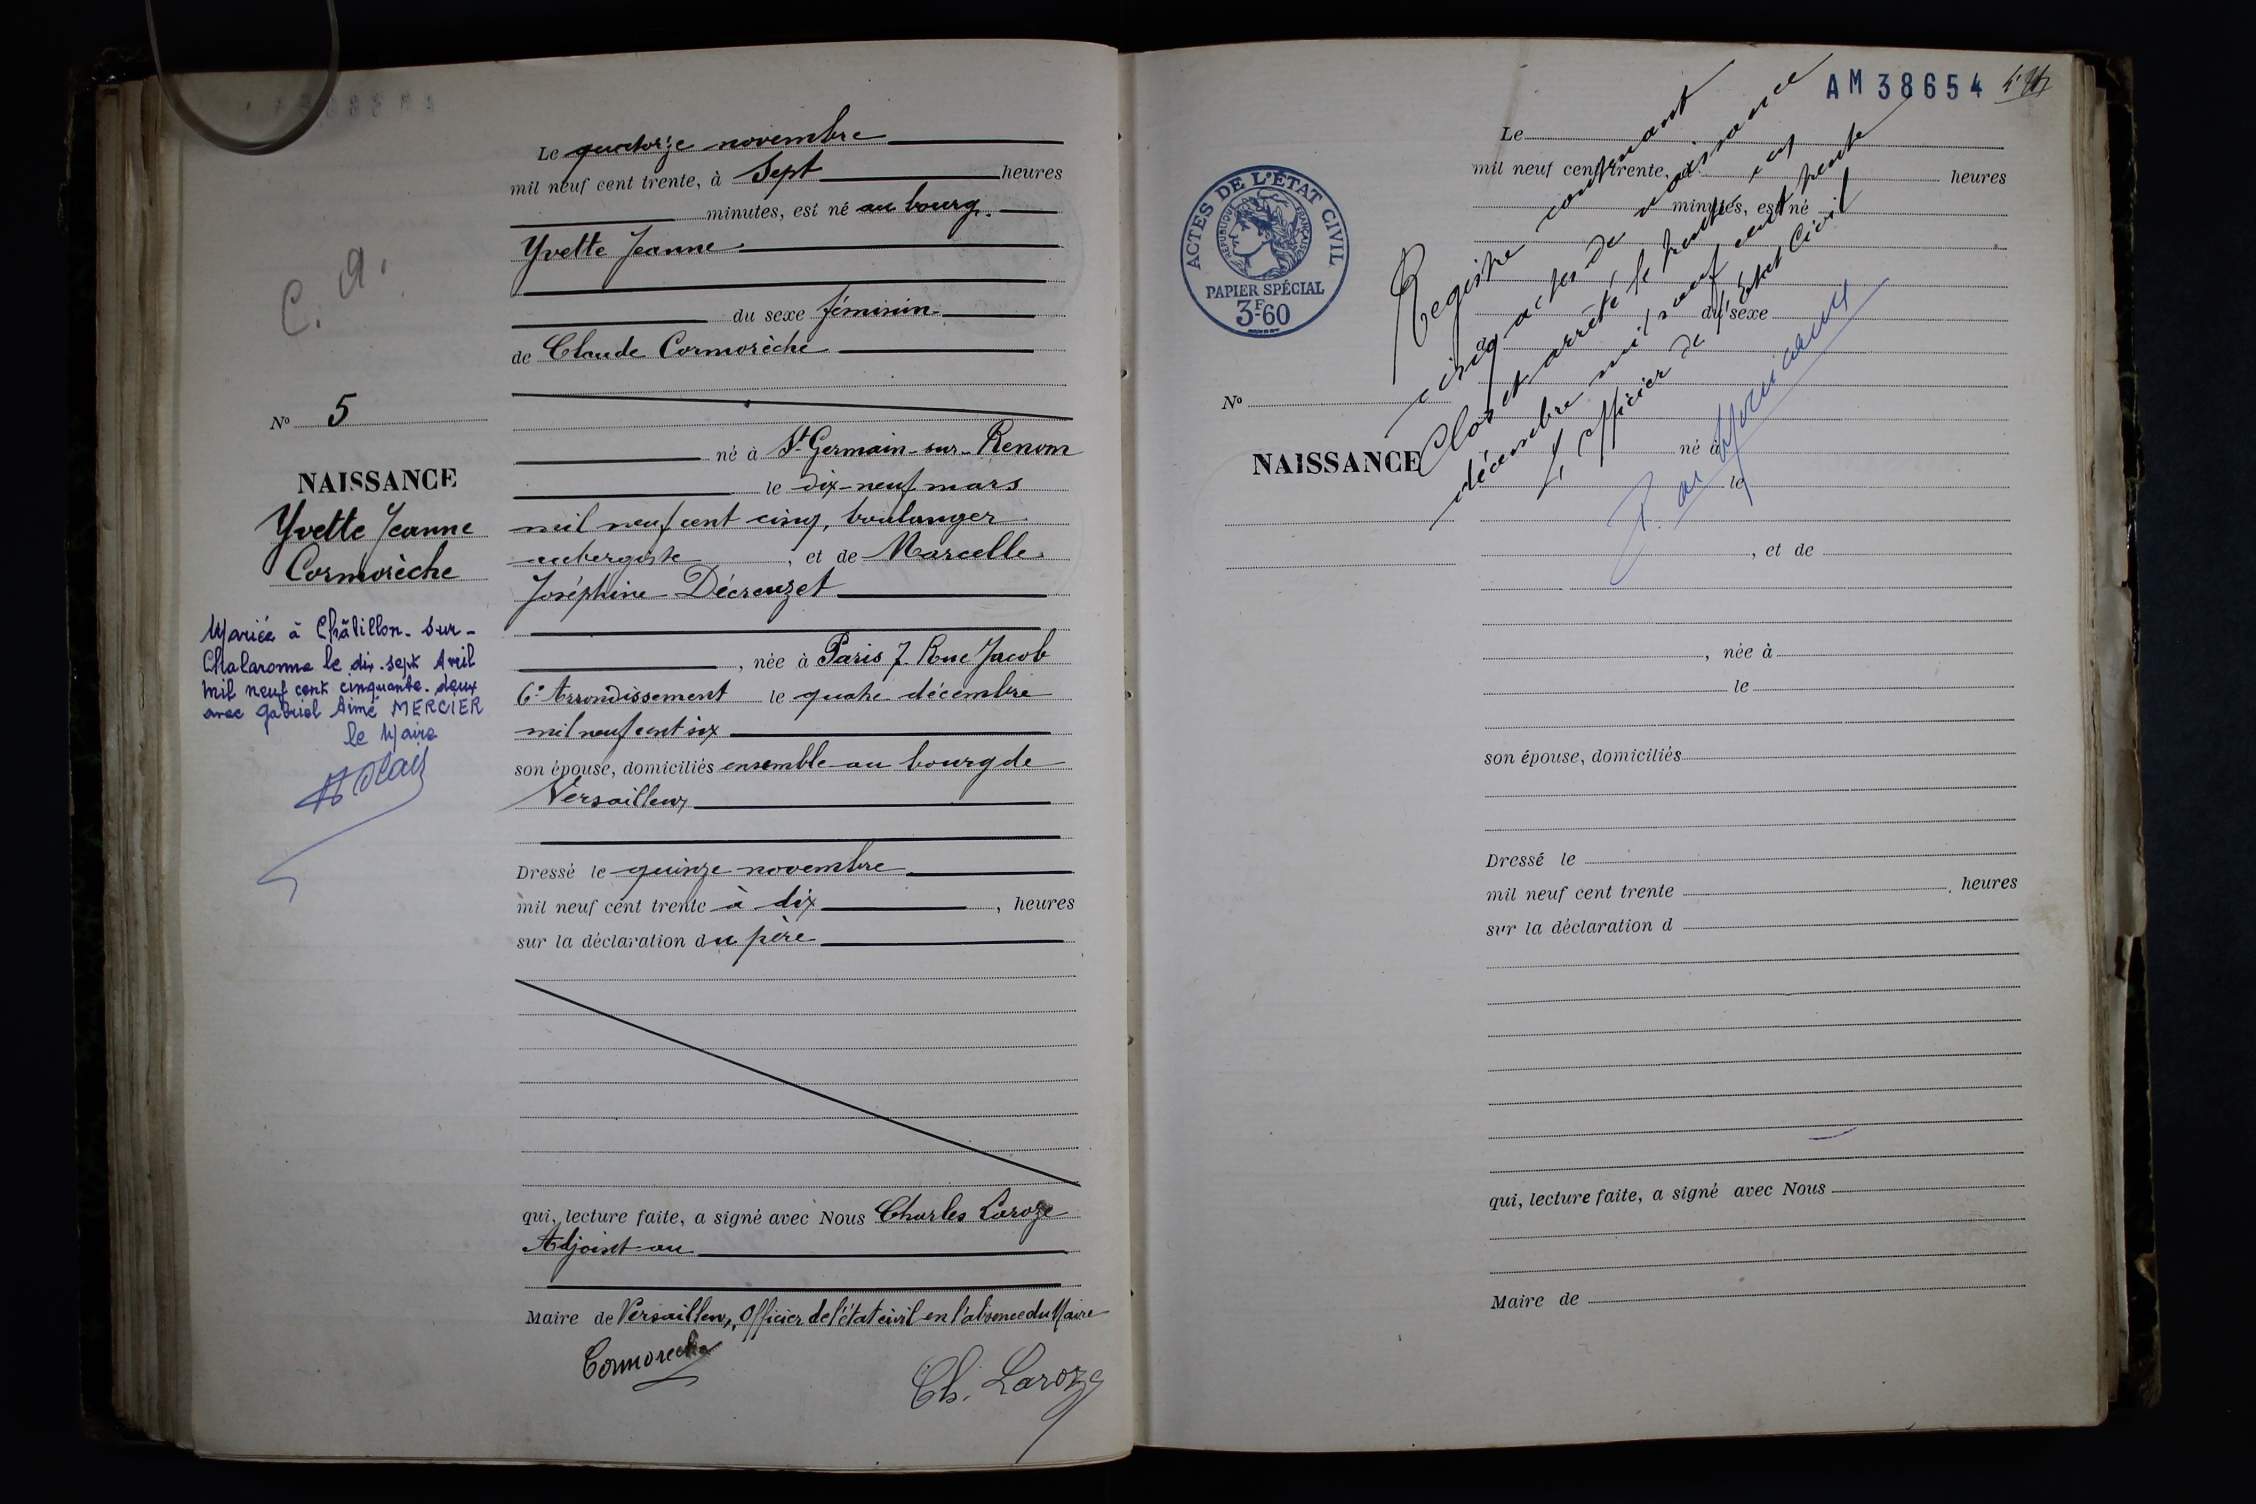 C. A.
N° 5
NAISSANCE
Yvette Jeanne
Cormorèche
Mariée à Châtillon-sur-
Chalaronne le dix-sept Avril
mil neuf cent cinquante-deux
avec Gabriel Aimé MERCIER
le Maire
Le quatorze novembre
mil neuf cent trente, à Sept heures
minutes, est né au bourg.
Yvette Jeanne
du sexe féminin
de Claude Cormorèche
né à St Germain-sur-Renom
le dix-neuf mars
mil neuf cent cinq, boulanger
aubergiste, et de Marcelle
Joséphine Décreuzet
, née à Paris 7 Rue Jacob
6e Arrondissement le quatre décembre
mil neuf cent six
son épouse, domiciliés ensemble au bourg de
Versailleux
Dressé le quinze novembre
mil neuf cent trente à dix, heures
sur la déclaration du père
qui, lecture faite, a signé avec Nous Charles Laroze
Adjoint au
Maire de Versailleux, Officier de l'état civil en l'absence du Maire
Cormoreche
Ch. Laroze
AM 38654
ACTES DE L'ÉTAT CIVIL
RÉPUBLIQUE FRANÇAISE
PAPIER SPÉCIAL
3F.60
Registre contenant
cinq actes de naissance
Clos et arrêté le trente et un
décembre mil neuf cent trente
L'officier de l'Etat Civil
N°
NAISSANCE
Le
mil neuf cent trente, à heures
minutes, est né
du sexe
de
né à
le
, et de
, née à
le
son épouse, domiciliés
Dressé le
mil neuf cent trente , heures
sur la déclaration d
qui, lecture faite, a signé avec Nous
Maire de